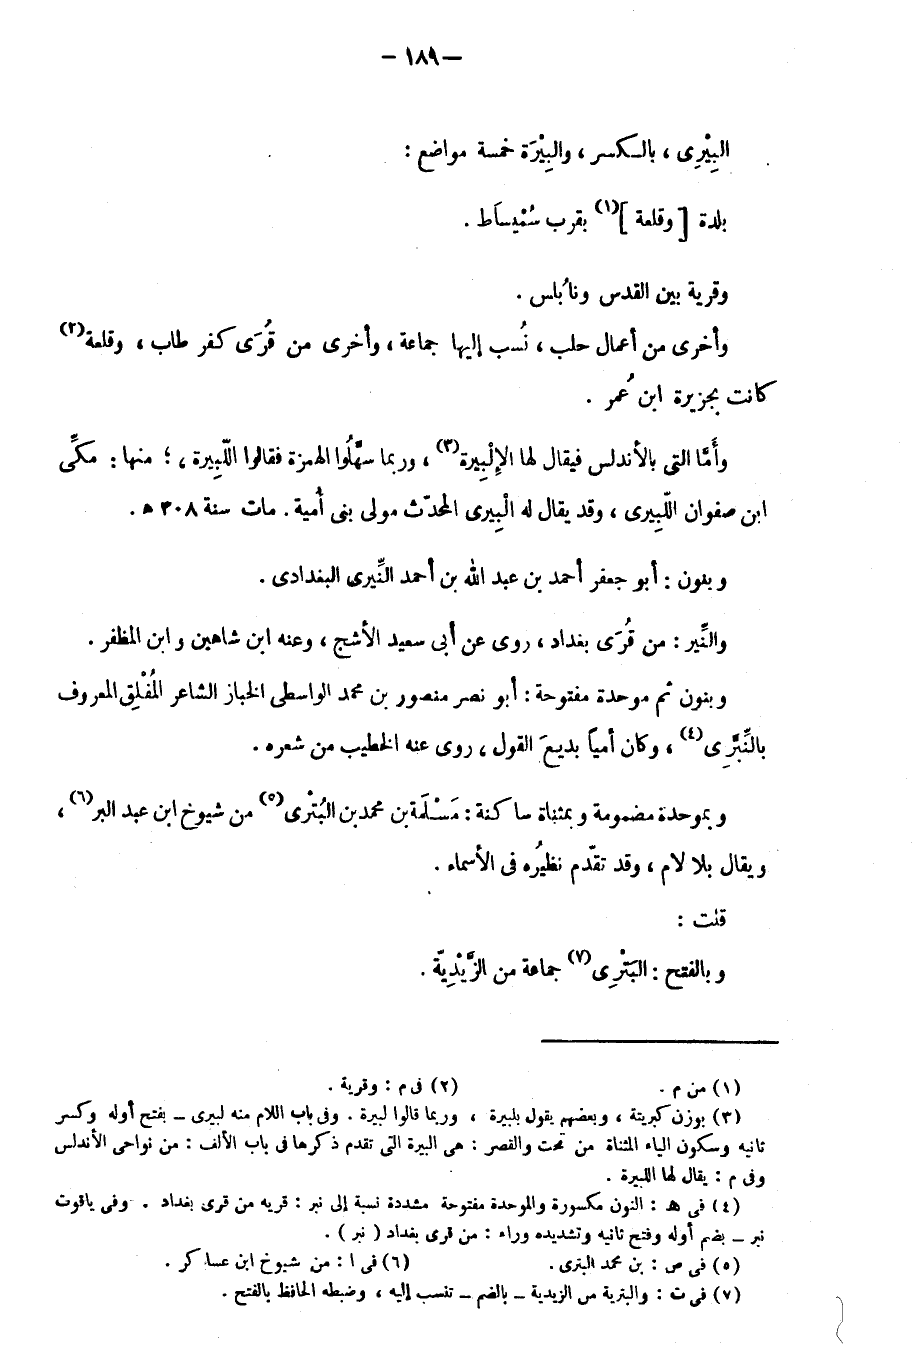 — ١٨٩ —
البِيْرِى ، بالكسر ، والبِيْرَة خمسة مواضع :
بلدة [ وقلعة ](١) بقرب سُمْيسَاط .
وقرية بين القدس ونابُلس .
وأخرى من أعمال حلب ، نُسب إليها جماعة ، وأخرى من قُرَى كفر طاب ، وقلعة(٢)
كانت بجزيرة ابن عُمر .
وأَمَّا التى بالأندلس فيقال لها الإِلْبِيرة(٣) ، وربما سهَّلُوا الهمزة فقالوا اللَّبِيرة ، ؛ منها : مكىِّ
ابن صفوان اللَّبِيرى ، وقد يقال له الْبِيرى المحدّث مولى بنى أُمية . مات سنة ٣٠٨ ه .
وبنون : أبو جعفر أحمد بن عبد الله بن أحمد النِّيرى البغدادى .
والنِّير : من قُرَى بغداد ، روى عن أبى سعيد الأشج ، وعنه ابن شاهين وابن المظفر .
وبنون ثم موحدة مفتوحة : أبو نصر منصور بن محمد الواسطى الخباز الشاعر المُفْلِق المعروف
بالنِّبَّرِى(٤) ، وكان أمياً بديعَ القول ، روى عنه الخطيب من شعره .
وبموحدة مضمومة وبمثناة ساكنة : مَسْلَمة بن محمد بن البُتْرى(٥) من شيوخ ابن عبد البر(٦) ،
ويقال بلا لام ، وقد تقدّم نظيرُه فى الأسماء .
قلت :
وبالفتح : البَتْرِى(٧) جماعة من الزَّيْدِيّة .
(١) من م . (٢) فى م : وقرية .
(٣) بوزن كبريتة ، وبعضهم يقول بلبيرة ، وربما قالوا لبيرة . وفى باب اللام منه لبيرى ــ بفتح أوله وكسر
ثانيه وسكون الياء المثناة من تحت والقصر : هى البيرة التى تقدم ذكرها فى باب الألف : من نواحى الأندلس
وفى م : يقال لها اللبيرة .
(٤) فى هـ : النون مكسورة والموحدة مفتوحة مشددة نسبة إلى نبر : قريه من قرى بغداد . وفى ياقوت
نبر ــ بضم أوله وفتح ثانيه وتشديده وراء : من قرى بغداد ( نبر ) .
(٥) فى ص : بن محمد البترى . (٦) فى ا : من شيوخ ابن عساكر .
(٧) فى ت : والبترية من الزيدية ــ بالضم ــ تنسب إليه ، وضبطه الحافظ بالفتح .